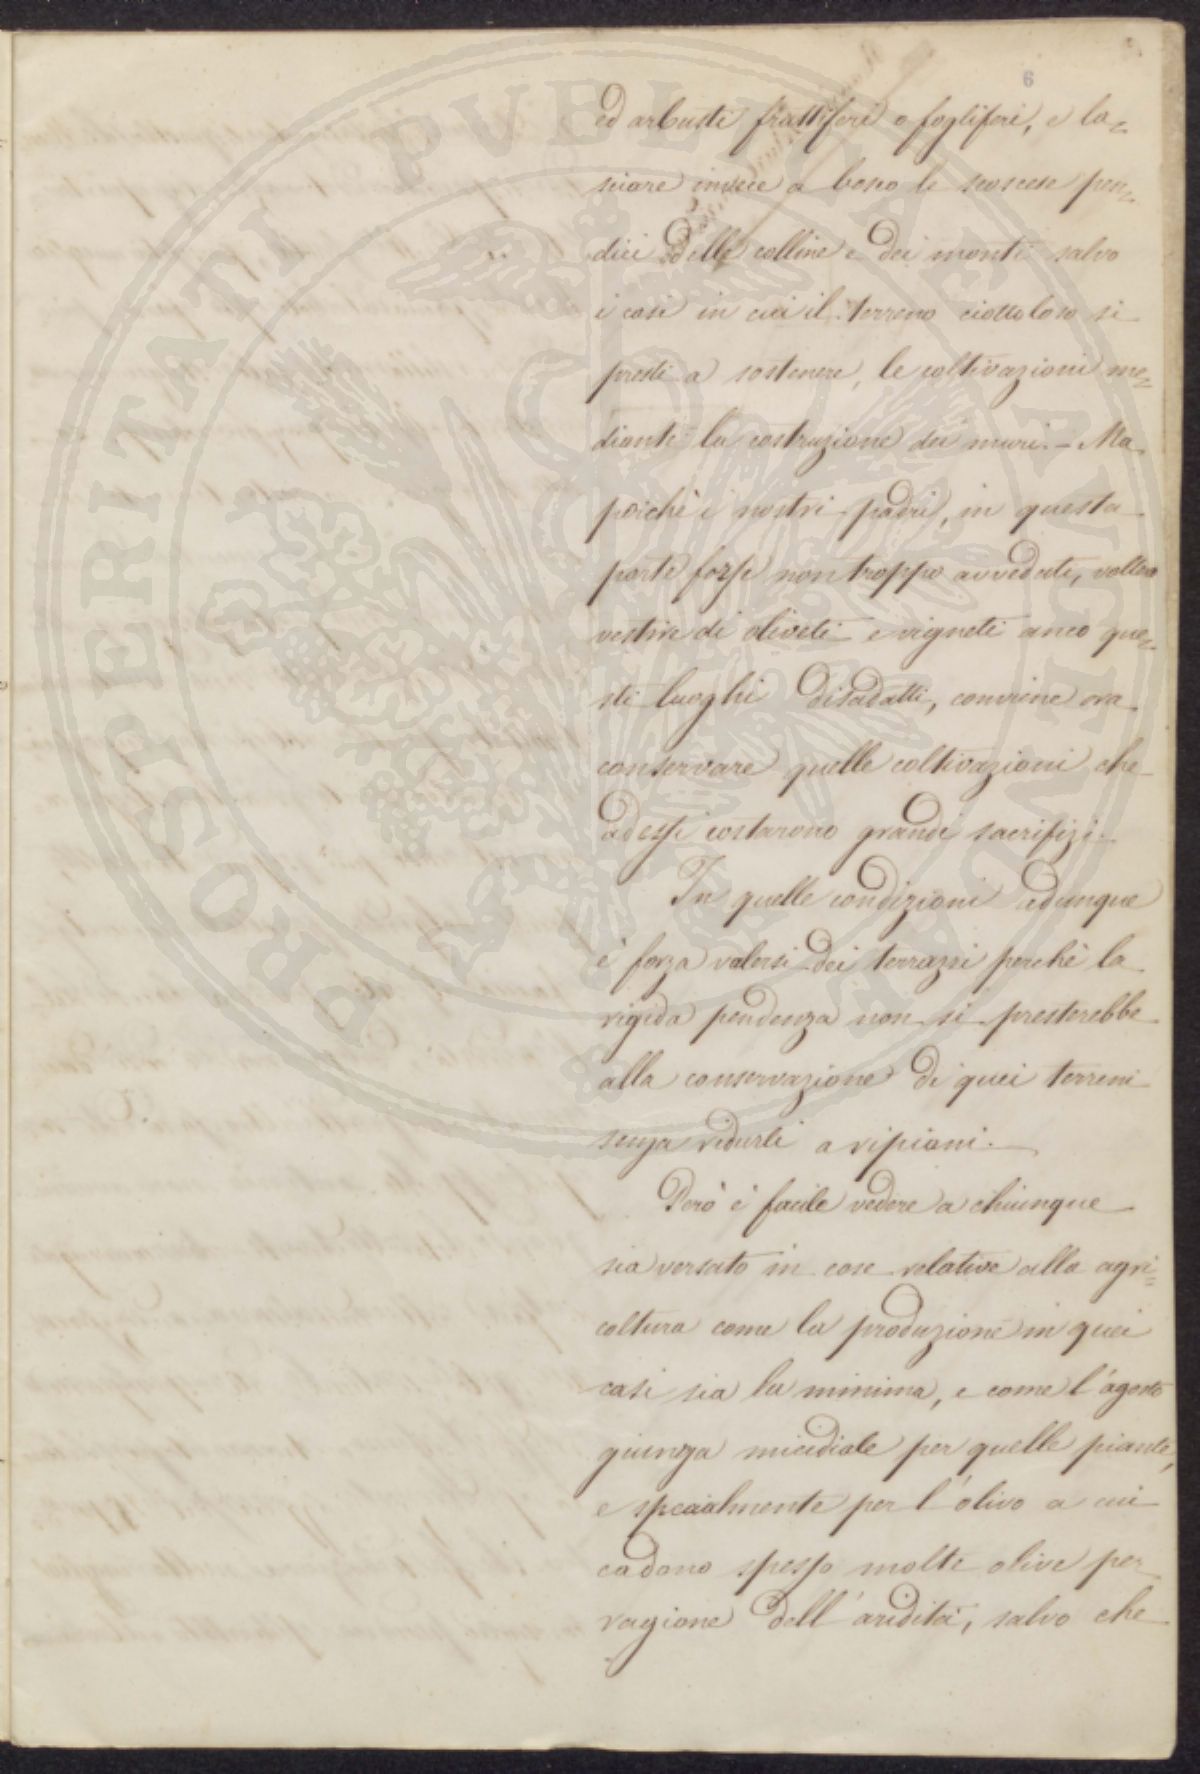 6
ed arbusti fruttiferi o fogliferi, e la=
sciare invece a bosco le scoscese pen=
dici delle colline e dei monti salvo
i casi in cui il terreno ciottoloso si
presti a sostenere, le coltivazioni me=
diante la costruzione dei muri. - Ma
poichè i nostri padri, in questa
parte forse non troppo avveduti, vollero
vestire di oliveti e vigneti anco que=
sti luoghi disadatti, conviene ora
conservare quelle coltivazioni che
ad essi costarono grandi sacrifizi.
In quelle condizioni adunque
è forza valersi dei terrazzi perchè la
rigida pendenza non si presterebbe
alla conservazione di quei terreni
senza ridurli a ripiani.
Però è facile vedere a chiunque
sia versato in cose relative alla agri=
coltura come la produzione in quei
casi sia la minima, e come l'agosto
giunga micidiale per quelle piante,
e specialmente per l'olivo a cui
cadono spesso molte olive per
ragione dell'aridità, salvo che
PROSPERITATI PVBLICAE AVGENDAE